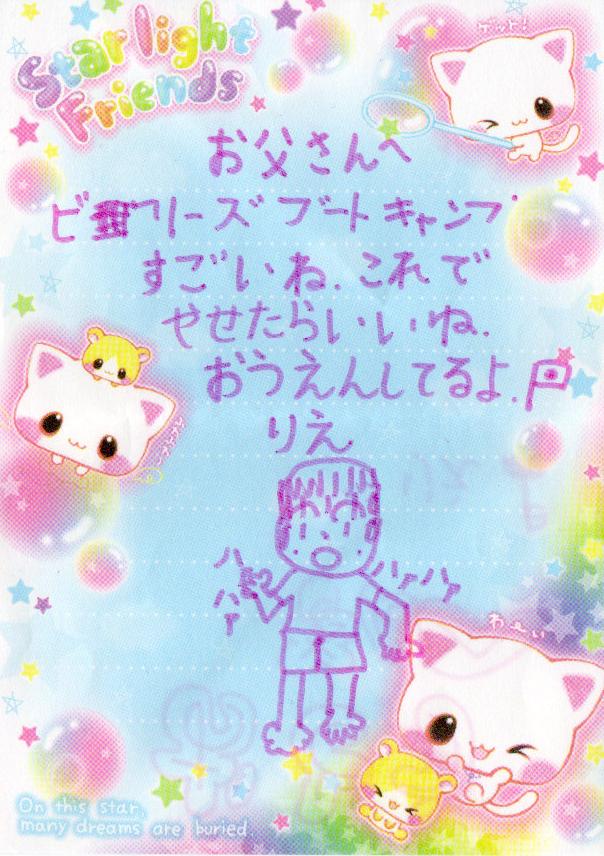 Starlight
Friends
ゲット!
お父さんへ
ビリーズブートキャンプ
すごいね.これで
やせたらいいね.
おうえんしてるよ.
りえ
ハァ
ハァ
ハァハァ
わーい
On this star,
many dreams are buried.